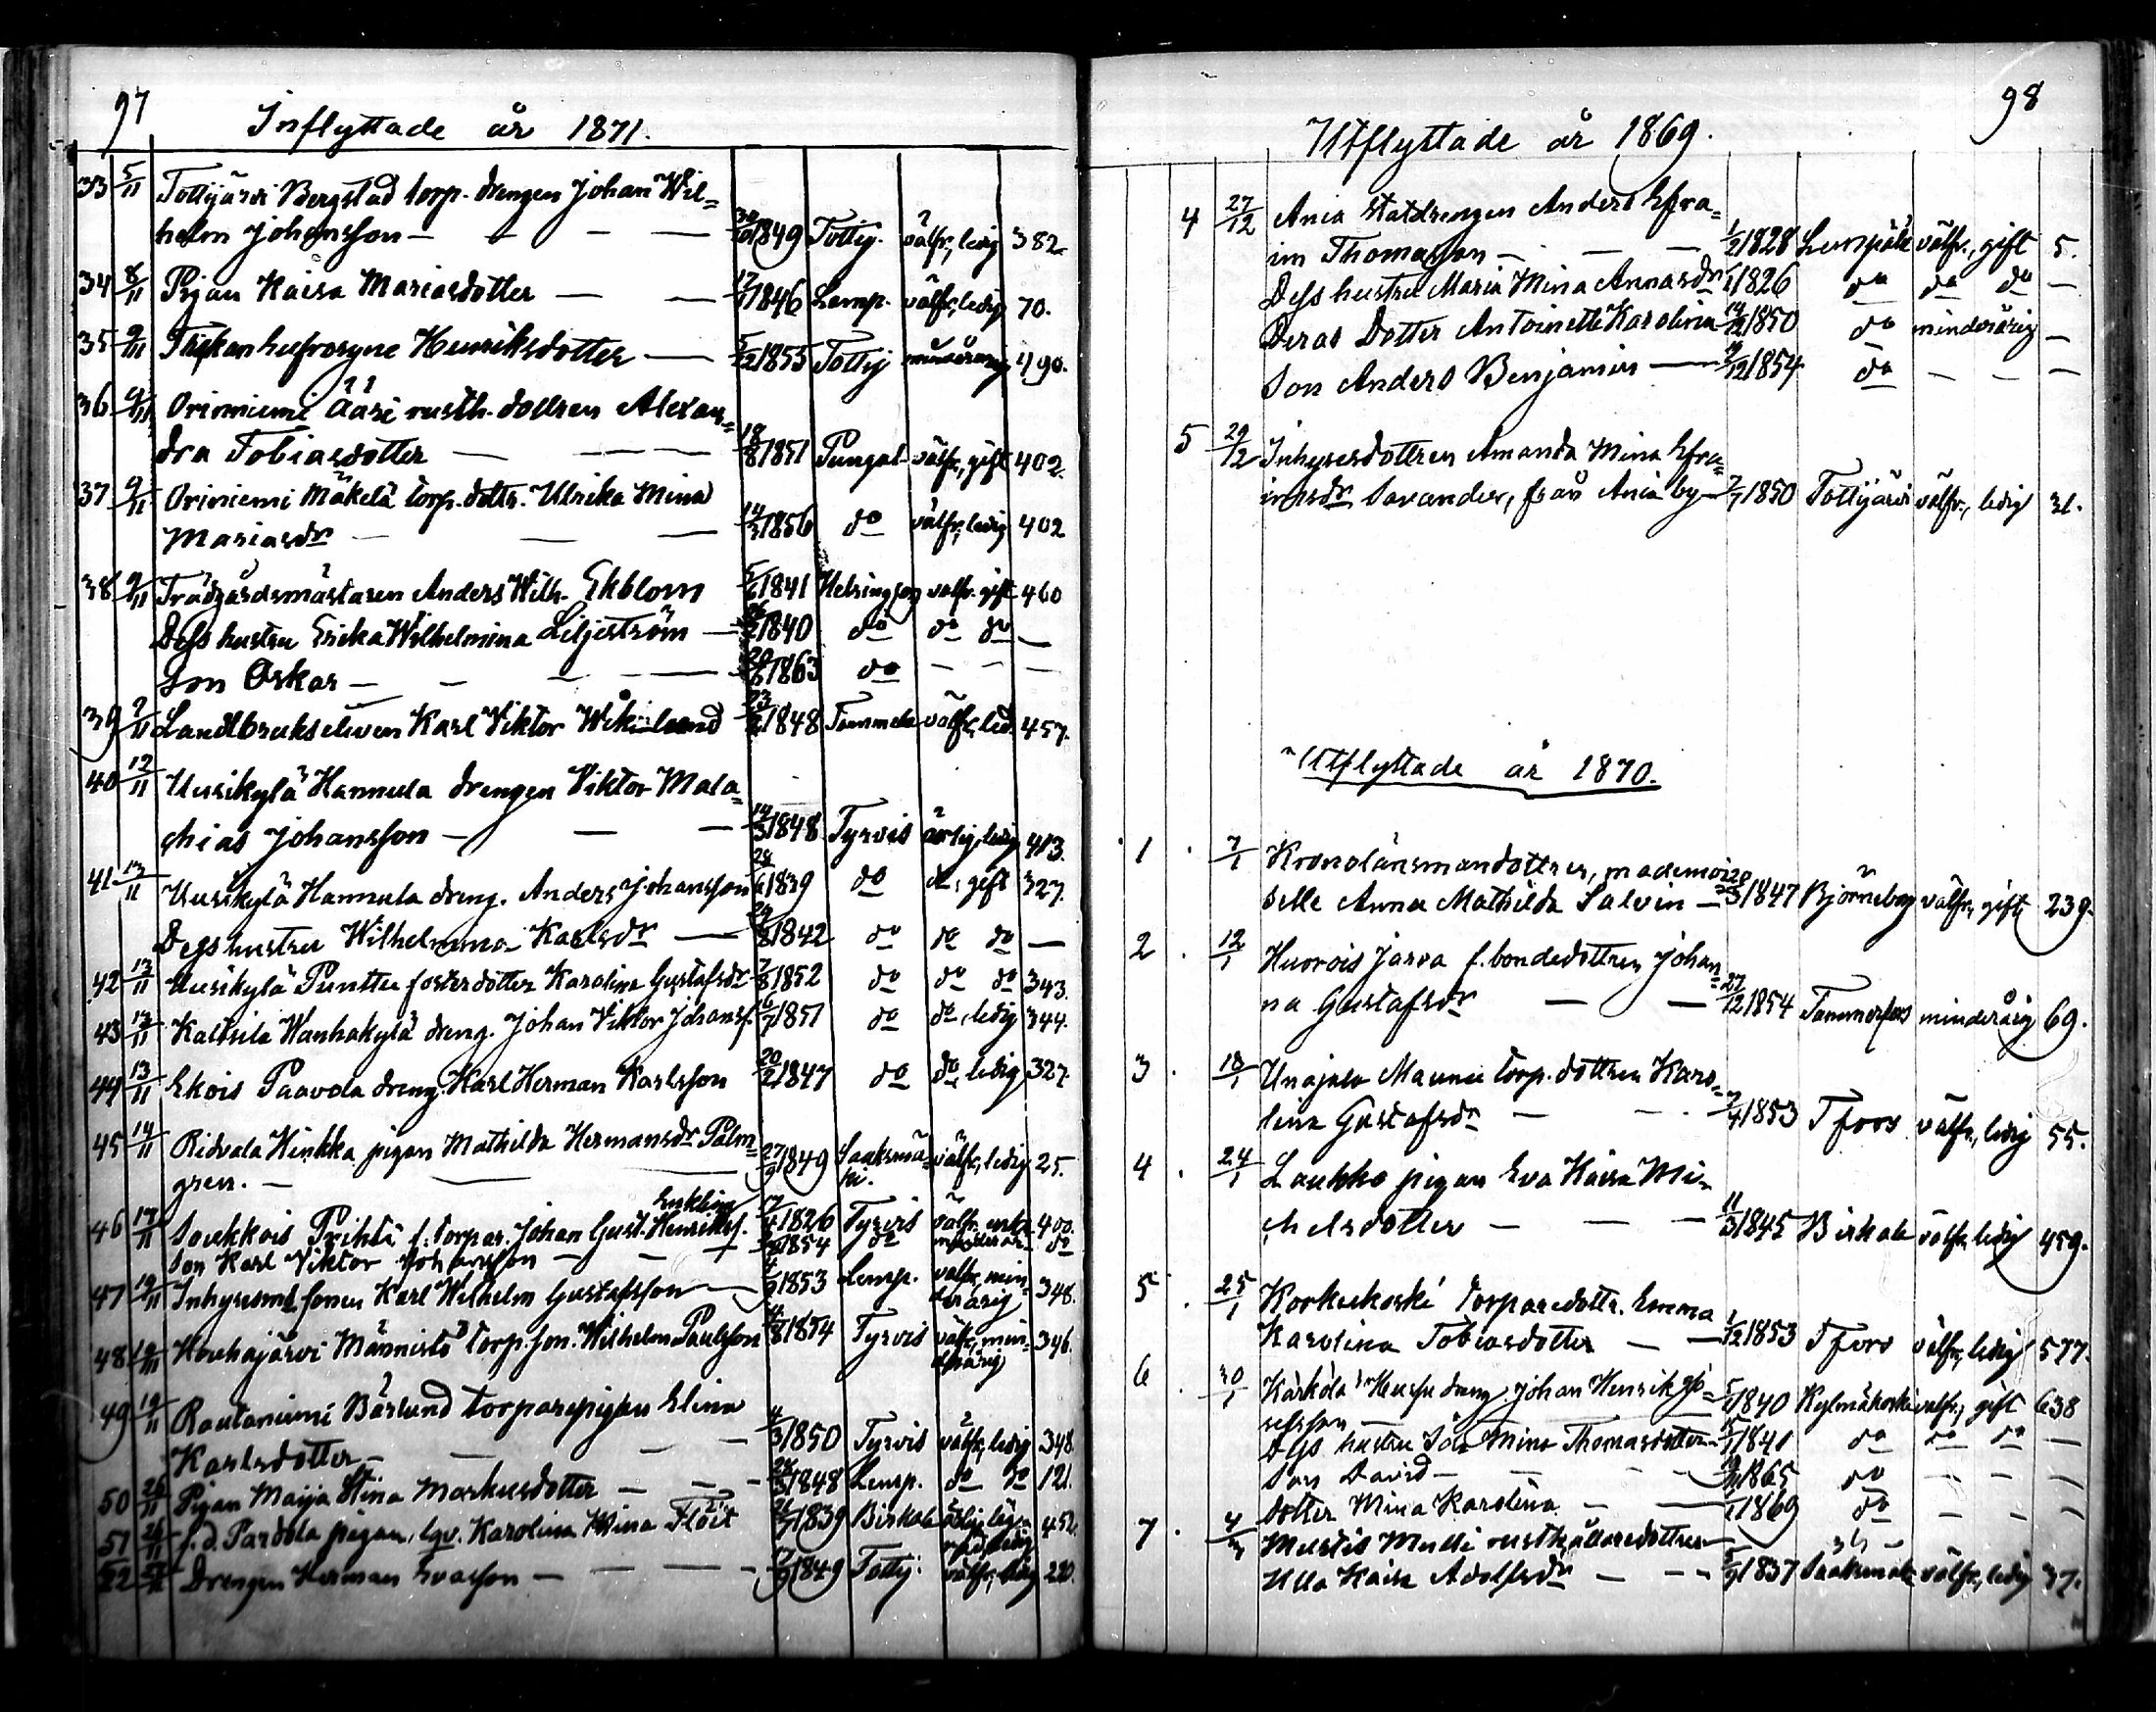 97
Inflyttade år 1871.
33 5/11 Tottijärvi Bergstad torp. drengen Johan Wil=
helm Johansson — — — — 1849 Tottij. välfr., ledig 382
34 8/11 Pigan Kaisa Mariasdotter — — 1846 Lemp. välfr., ledig 70.
35 9/11 Flickan Eufrosyne Henriksdotter — 5/12 1855 Tottij minderårig 490.
36 9/11 Oriniemi Ääri rusth. dottren Alexan=
dra Tobiasdotter — — — 18/8 1851 Pungal. välfr., gift 402.
37 9/11 Oriniemi Mäkelä torp. dottr. Ulrika Mina
Mariasdr — — — 14/3 1856 do välfr., ledig 402
38 9/11 Trädgårdsmästaren Anders Wilh. Ekblom 5/6 1841 Helsingfors välfr. gift 460
Dess hustru Erika Wilhelmina Liljeström — 1840 do do do —
Son Oskar — — — — 1863 do — — —
39 9/11 Landtbrukseleven Karl Viktor 1848 Tammela välfr., led. 457.
40 12/11 Uusikylä Hannula drengen Viktor Mala=
chias Johansson — — — 14/3 1848 Tyrvis ärlig, ledig 413.
41 13/11 Uusikylä Hannula dreng. Anders Johansson 28/6 1839 do do, gift 327.
Dess hustru Wilhelmina Karlsdr — 29/8 1842 do do do —
42 13/11 Uusikylä Punttu fosterdotter Karolina Gustafsdr 7/8 1852 do do do 343.
43 13/11 Kaltsila Wanhakylä dreng. Johan Viktor Johanss. 6/7 1851 do do, ledig 344.
44 13/11 Ekois Paavola dreng. Karl Herman Karlsson 20/2 1847 do do, ledig 327.
45 14/11 Ridvala Hinkka pigan Mathilda Hermansdr Palm=
gren. — — 27/9 1849 Sääksmä=
ki. välfr., ledig 25.
Enkling
46 17/11 Soukkois Prihti f. torpar. Johan Gust. Henrikss. 1826 Tyrvis välfr. enkl. 400.
Son Karl Viktor Johansson — — — 1854 do minderår. do
47 19/11 Inhyses sonen Karl Wilhelm Gustafsson — 1853 Lemp. välfr., min=
derårig 348.
48 19/11 Houhajärvi Männistö torp. son. Wilhelm Paulsson 1854 Tyrvis välfr., min=
derårig 346.
49 19/11 Rautaniemi Bärlund torparepigan Elina
Karlsdotter — — — — 1850 Tyrvis välfr., ledig 348.
50 26/11 Pigan Maija Stina Markusdotter — — — 1848 Lemp. do do 121.
51 26/11 f.d. Pardola pigan, Karolina Mina Flöit 1839 Birkala 452.
52 Drengen Herman Evasson — — — — 1849 Tottij. välfr., ledig 220.
98
Utflyttade år 1869.
4 27/12 Ania statdrengen Anders Efra=
im Thomasson — — — 1/2 1828 Lempälä välfr., gift 5.
Dess hustru Maria Mina Annasdr 1826 do do do —
Deras Dotter Antoinette Karolina 1850 do minderårig —
Son Anders Benjamin — 1854 do — — —
5 29/12 Inhysesdottren Amanda Mina Efra=
imsdr Savander, från Ania by — 7/7 1850 Tottijärvi välfr., ledig 31.
Utflyttade år 1870.
1 7/1 Kronolänsmandottren, mademoi=
selle Anna Mathilda Salvin — 1847 Björneborg välfr., gift, 239.
2 12/1 Huorois Jarva f. bondedottren Johan=
na Gustafsdr — — 27/12 1854 Tammerfors minderårig 69.
3 18/1 Unajala Maunu torp. dottren Karo=
lina Gustafsdr — — 1853 Tfors välfr., ledig 55.
4 24/1 Laukko pigan Eva Kaisa Mi=
chelsdotter — — — 11/3 1845 Birkala välfr., ledig 459.
5 25/1 Korkeekoski torparedottr. Emma
Karolina Tobiasdotter — — 1/12 1853 Tfors välfr., ledig 577.
6 30/1 Kärkölä dreng Johan Henrik Jo=
sefsson — 1840 Kylmäkoski välfr., gift 638
Dess hustru Mina Thomasdotter 1841 do do do —
Son David — — — 1865 do — — —
Dotter Mina Karolina — — 1869 do — — —
7 Mustis Mulli rusthållaredottren
Ulla Kaisa Adolfsdr — — — 1837 Sääksmäki välfr., ledig 37.